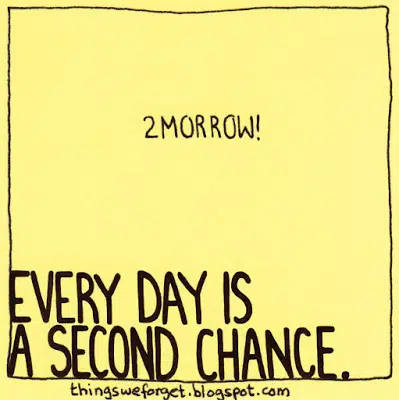 2MORROW!
EVERY DAY IS
A SECOND CHANCE.
thingsweforget.blogspot.com